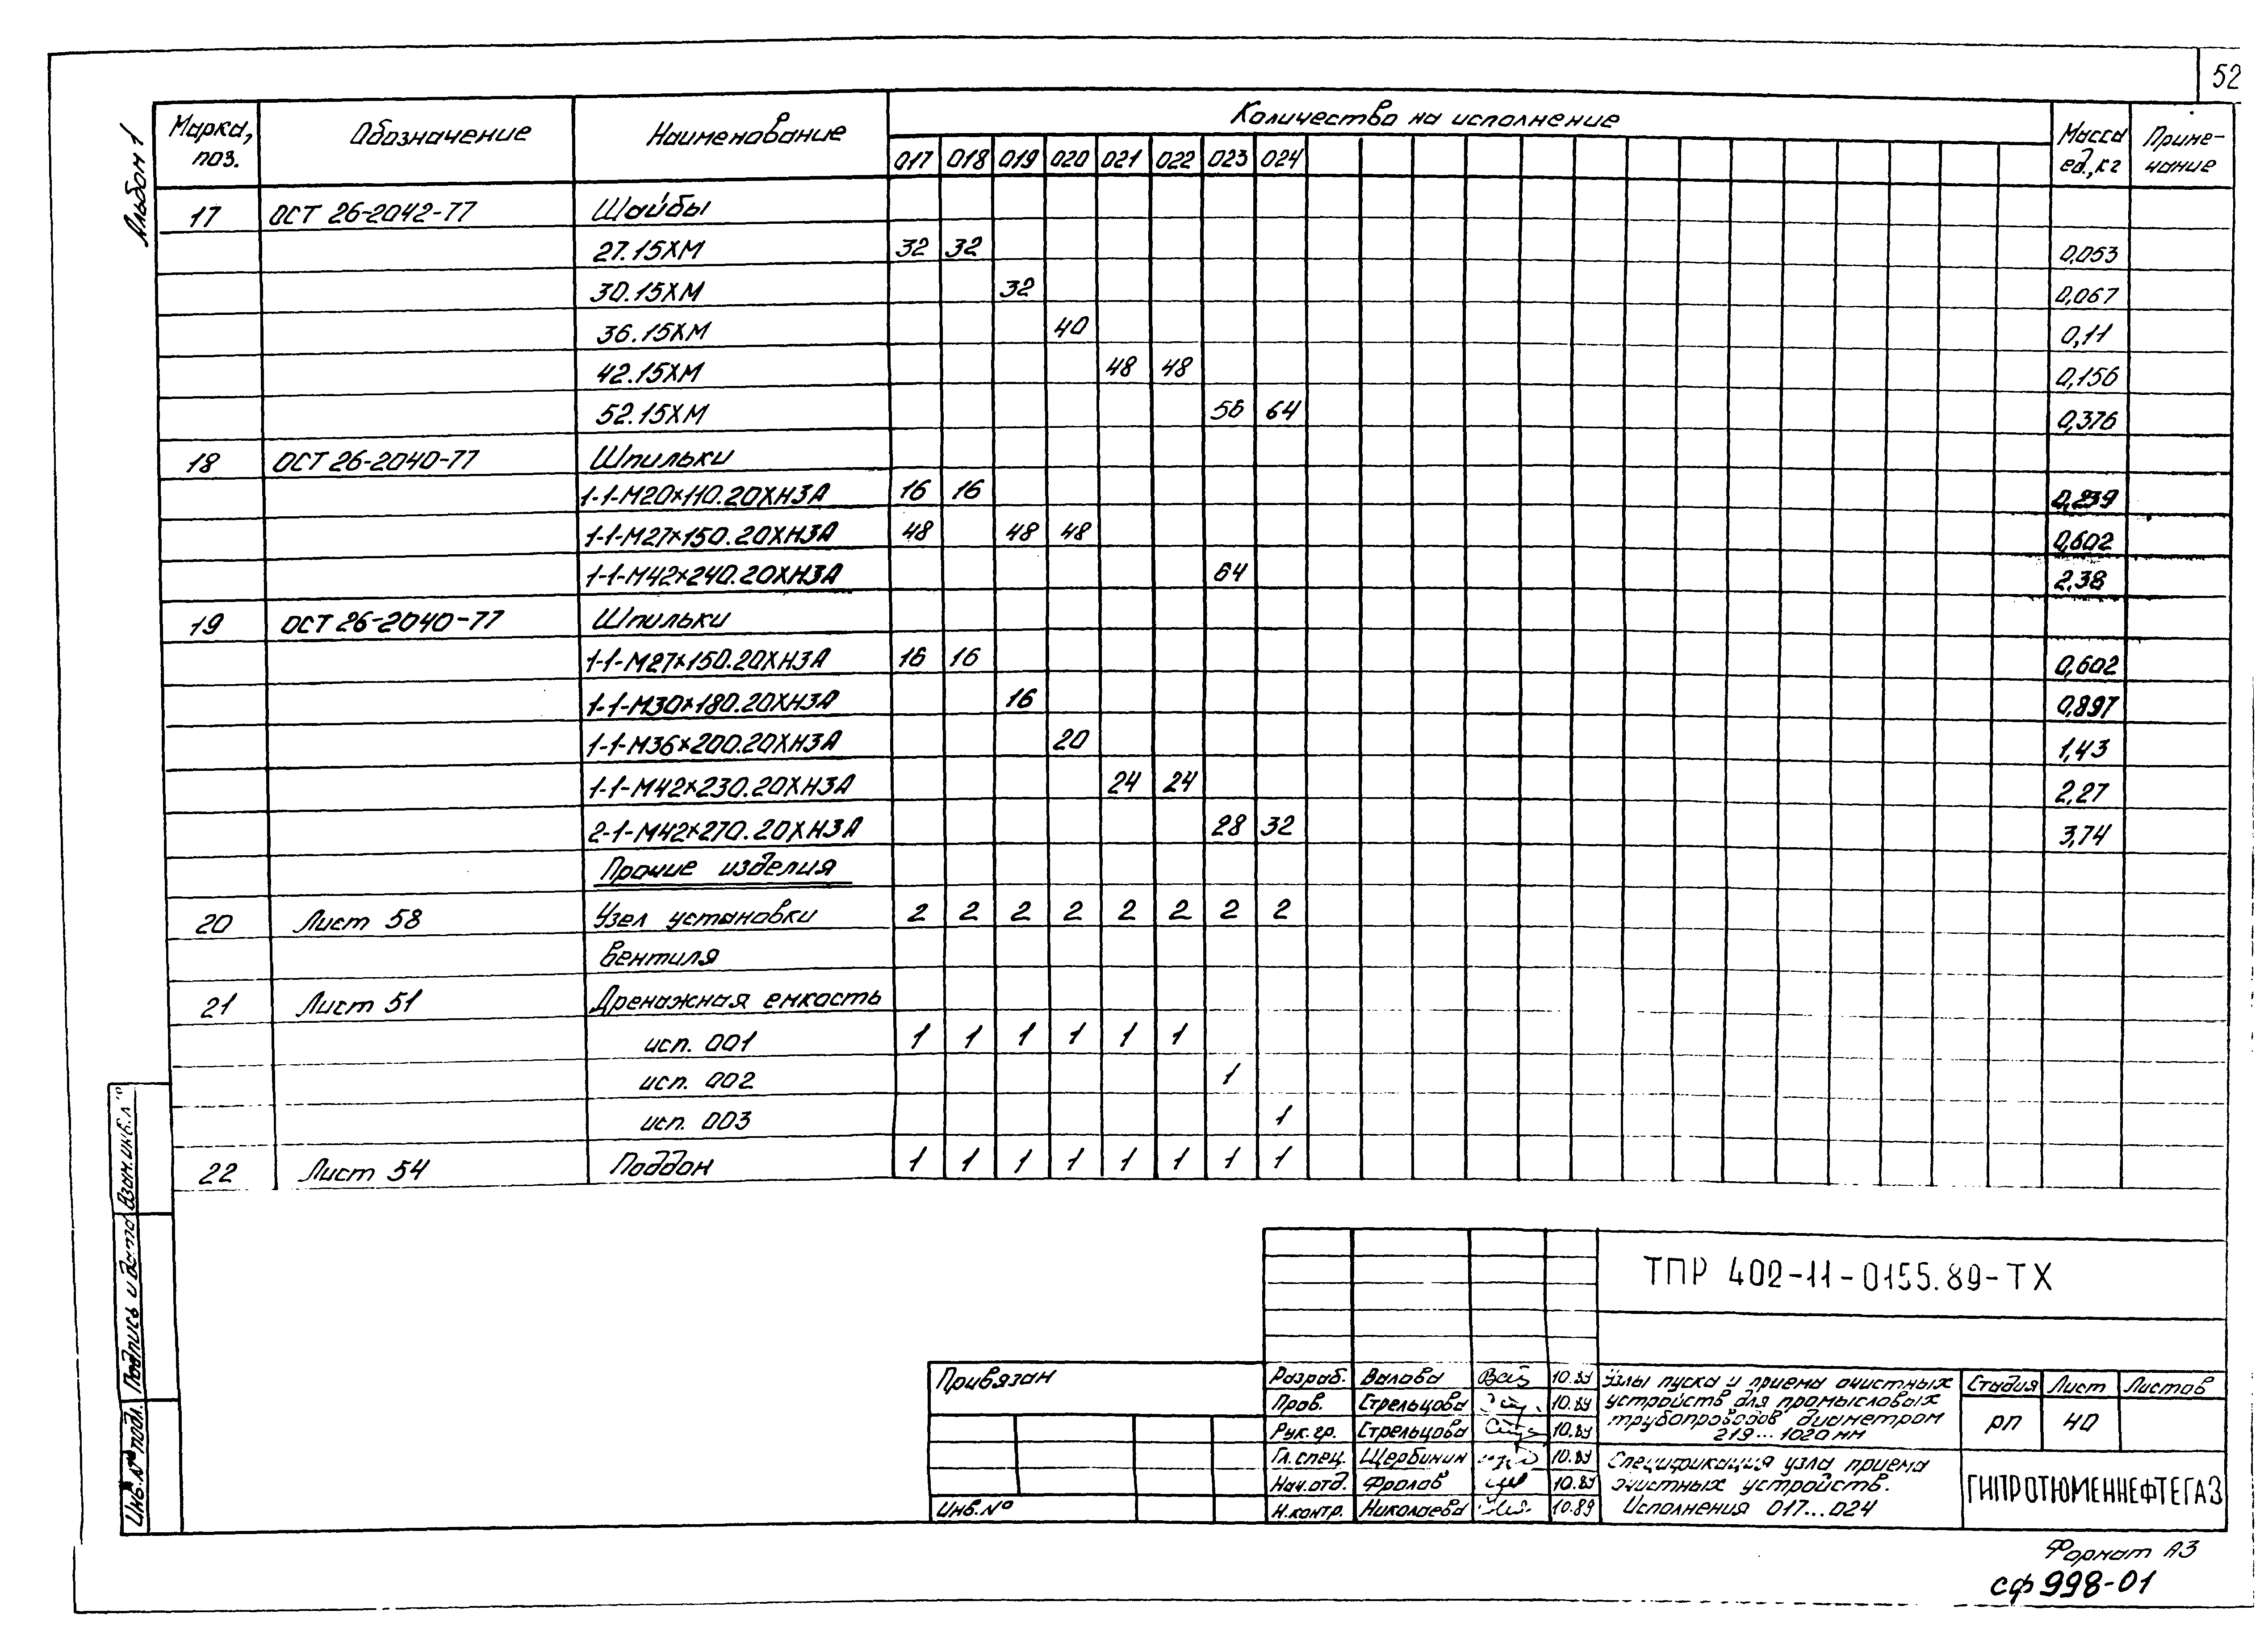 52
Альбом 1
Марка, поз. Обозначение Наименование Количество на исполнение Масса ед.,кг Примечание
017 018 019 020 021 022 023 024
17 ОСТ 26-2042-77 Шайбы
27.15ХМ 32 32 0,053
30.15ХМ 32 0,067
36.15ХМ 40 0,11
42.15ХМ 48 48 0,156
52.15ХМ 56 64 0,376
18 ОСТ 26-2040-77 Шпильки
1-1-М20×110.20ХН3А 16 16 0,239
1-1-М27×150.20ХН3А 48 48 48 0,602
1-1-М42×240.20ХН3А 64 2,38
19 ОСТ 26-2040-77 Шпильки
1-1-М27×150.20ХН3А 16 16 0,602
1-1-М30×180.20ХН3А 16 0,897
1-1-М36×200.20ХН3А 20 1,43
1-1-М42×230.20ХН3А 24 24 2,27
2-1-М42×270.20ХН3А 28 32 3,74
Прочие изделия
20 Лист 58 Узел установки 2 2 2 2 2 2 2 2
вентиля
21 Лист 51 Дренажная емкость
исп. 001 1 1 1 1 1 1
исп. 002 1
исп. 003 1
22 Лист 54 Поддон 1 1 1 1 1 1 1 1
Инв.№ подл. Подпись и дата Взам.инв.№
ТПР 402-11-0155.89-ТХ
Привязан
Инв.№
Разраб. Валова 10.89
Пров. Стрельцова 10.89
Рук.гр. Стрельцова 10.89
Гл.спец. Щербинин 10.89
Нач.отд. Фролов 10.89
Н.контр. Николаева 10.89
Узлы пуска и приема очистных
устройств для промысловых
трубопроводов диаметром
219...1020 мм
Стадия Лист Листов
РП 40
Спецификация узла приема
очистных устройств.
Исполнения 017...024
ГИПРОТЮМЕННЕФТЕГАЗ
Формат А3
сф 998-01